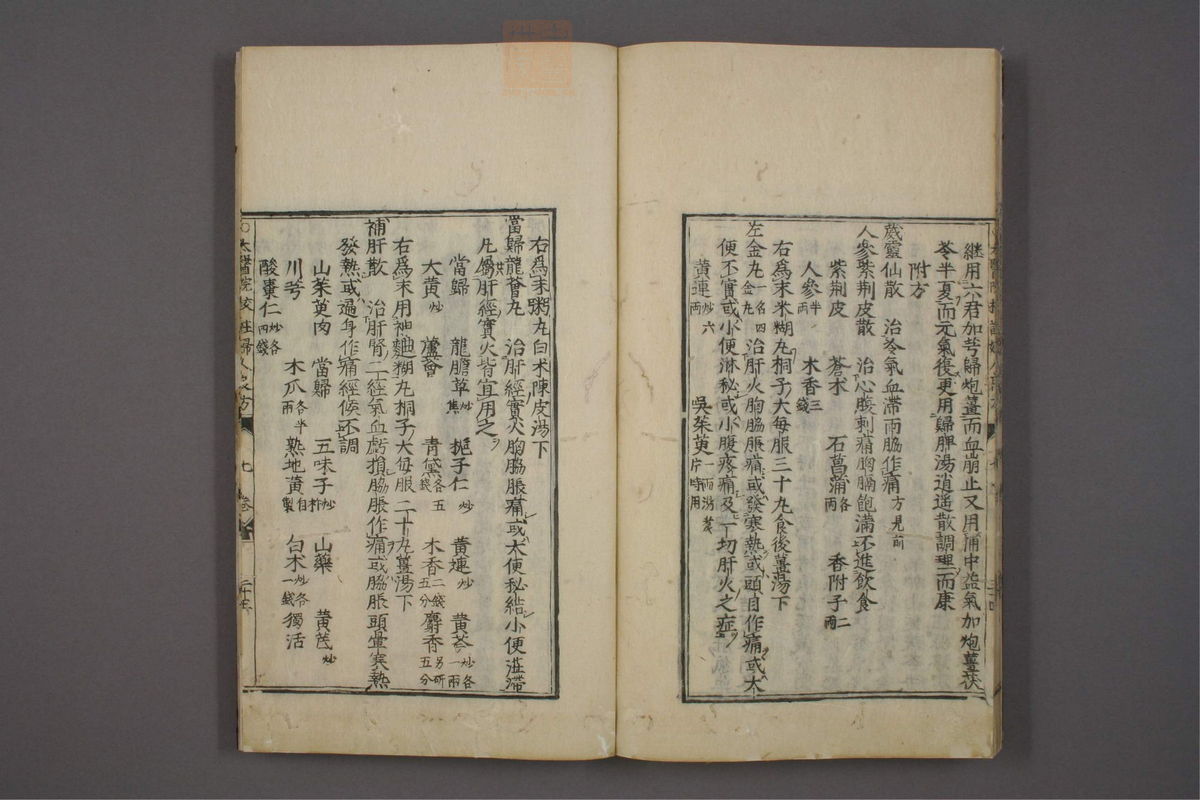 继用六君加芎歸炮薑而血崩止又用補中益氣加炮薑茯
苓半夏而元氣復更用歸脾湯逍遙散調理而康
附方
葳靈仙散 治冷氣血滯兩脇作痛方見前
人參紫荆皮散 治心腹刺痛胸膈飽滿不進飲食
紫荆皮 蒼术 石菖蒲各兩 香附子二兩
人參半兩 木香三錢
右爲末米糊丸桐子大每服三十丸食後薑湯下
左金丸一名四金丸 治肝火胸脇脹痛或發寒熱或頭目作痛或大
便不實或小便淋秘或小腹疼痛及一切肝火之症
黄連炒六兩 吳茱萸一兩湯煑片時用
右爲末粥丸白术陳皮湯下
當歸龍薈丸 治肝經實火胸脇脹痛或大便秘結小便澁滯
凡屬肝經實火皆宜用之
當歸 龍膽草炒焦 梔子仁炒 黄連炒 黄芩炒各一兩
大黄炒 蘆薈 青黛各五錢 木香二錢五分 麝香另研五分
右爲末用神麯糊丸桐子大每服二十丸薑湯下
補肝散 治肝腎二經氣血虧損脇脹作痛或脇脹頭暈寒熱
發熱或遍身作痛經候不調
山茱萸肉 當歸 五味子炒杵 山藥 黄芪炒
川芎 木瓜各半兩 熟地黄自製 白术炒各一錢 獨活
酸棗仁炒各四錢
太醫院校註婦人良方 七卷